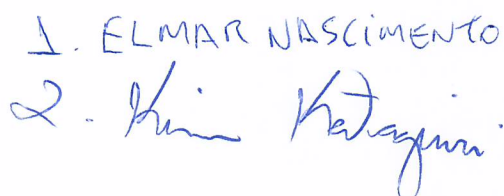 1. ELMAR NASCIMENTO
2. Kim Kataguiri